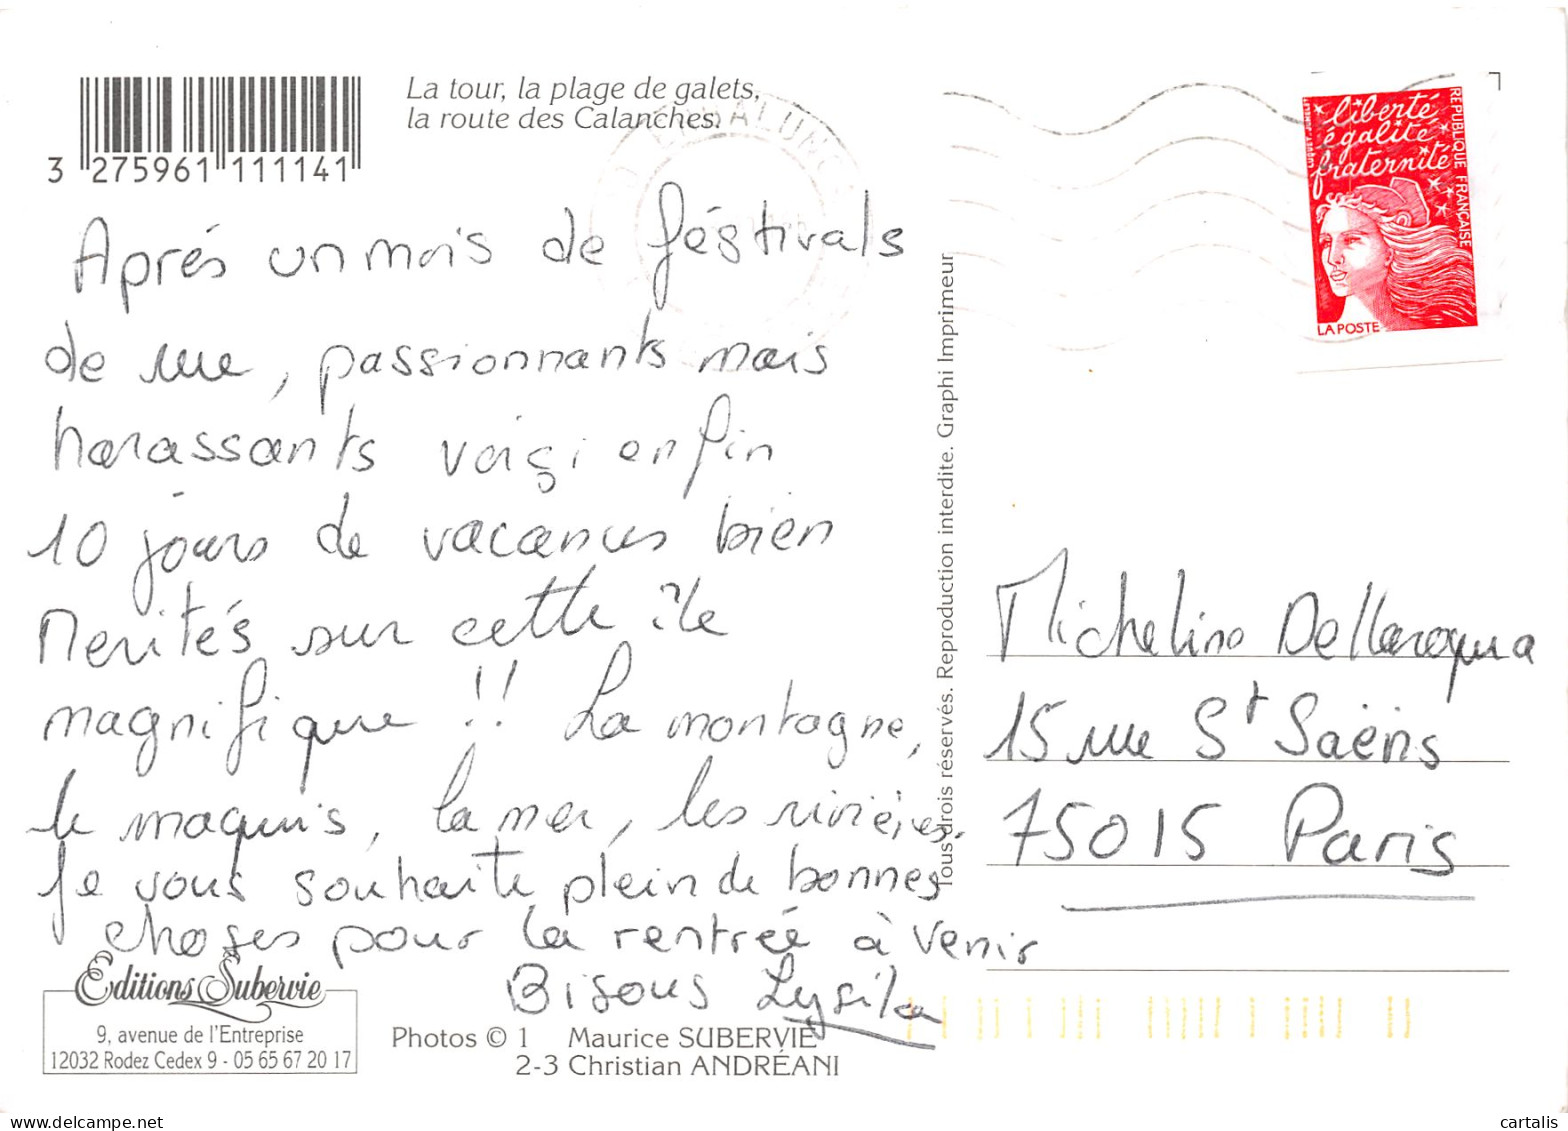 La tour, la plage de galets,
la route des Calanches.
3 275961 111141
Aprés un mois de féstivals
de rue, passionnants mais
harassants voiçi enfin
10 jours de vacances bien
Merités sur cette île
magnifique !! La montagne,
le maquis, la mer, les rivières.
Je vous souhaite plein de bonnes
choses pour la rentrée à venir
Bisous Lysila
Editions Subervie
9, avenue de l'Entreprise
12032 Rodez Cedex 9 - 05 65 67 20 17
Photos © 1 Maurice SUBERVIE
2-3 Christian ANDRÉANI
Tous drois réservés. Reproduction interdite. Graphi Imprimeur
liberté
égalité
fraternité
REPUBLIQUE FRANÇAISE
LA POSTE
Micheline Dellaroqua
15 rue St Saëns
75015 Paris
cartalis